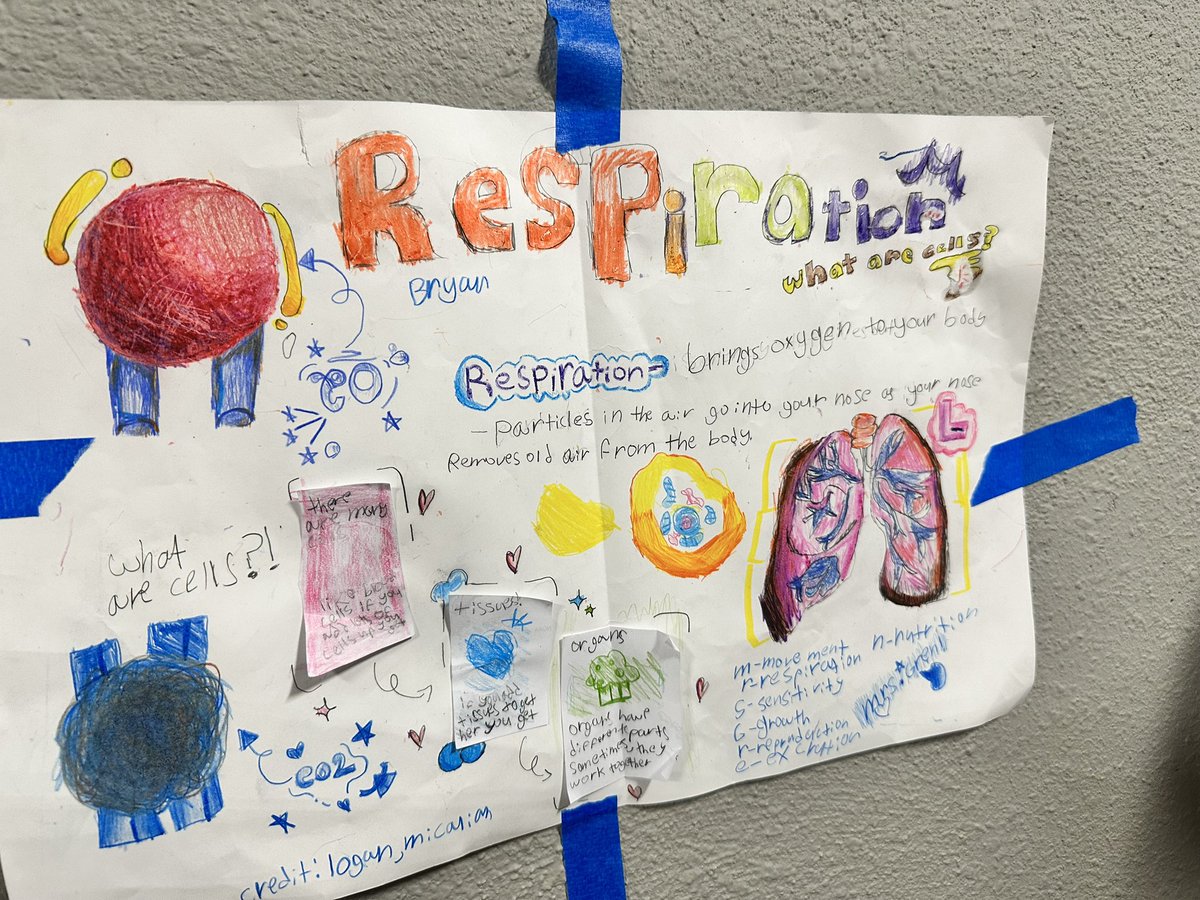 Respiration
M
what are cells?
Bryan
Respiration- brings oxygen to your body
- particles in the air go into your nose as your nose
Removes old air from the body.
L
eo
what
are cells?!
there
are many
like big
cells if you
get
tissues!
if you add
tissues to get
her you get
organs
organs have
different parts
sometimes they
work together
m-movement
r-respiration n-nutrition
s-sensitivity
G-growth
r-reproduction
e-excration
mrs grenn
co2
credit: logan, micalian